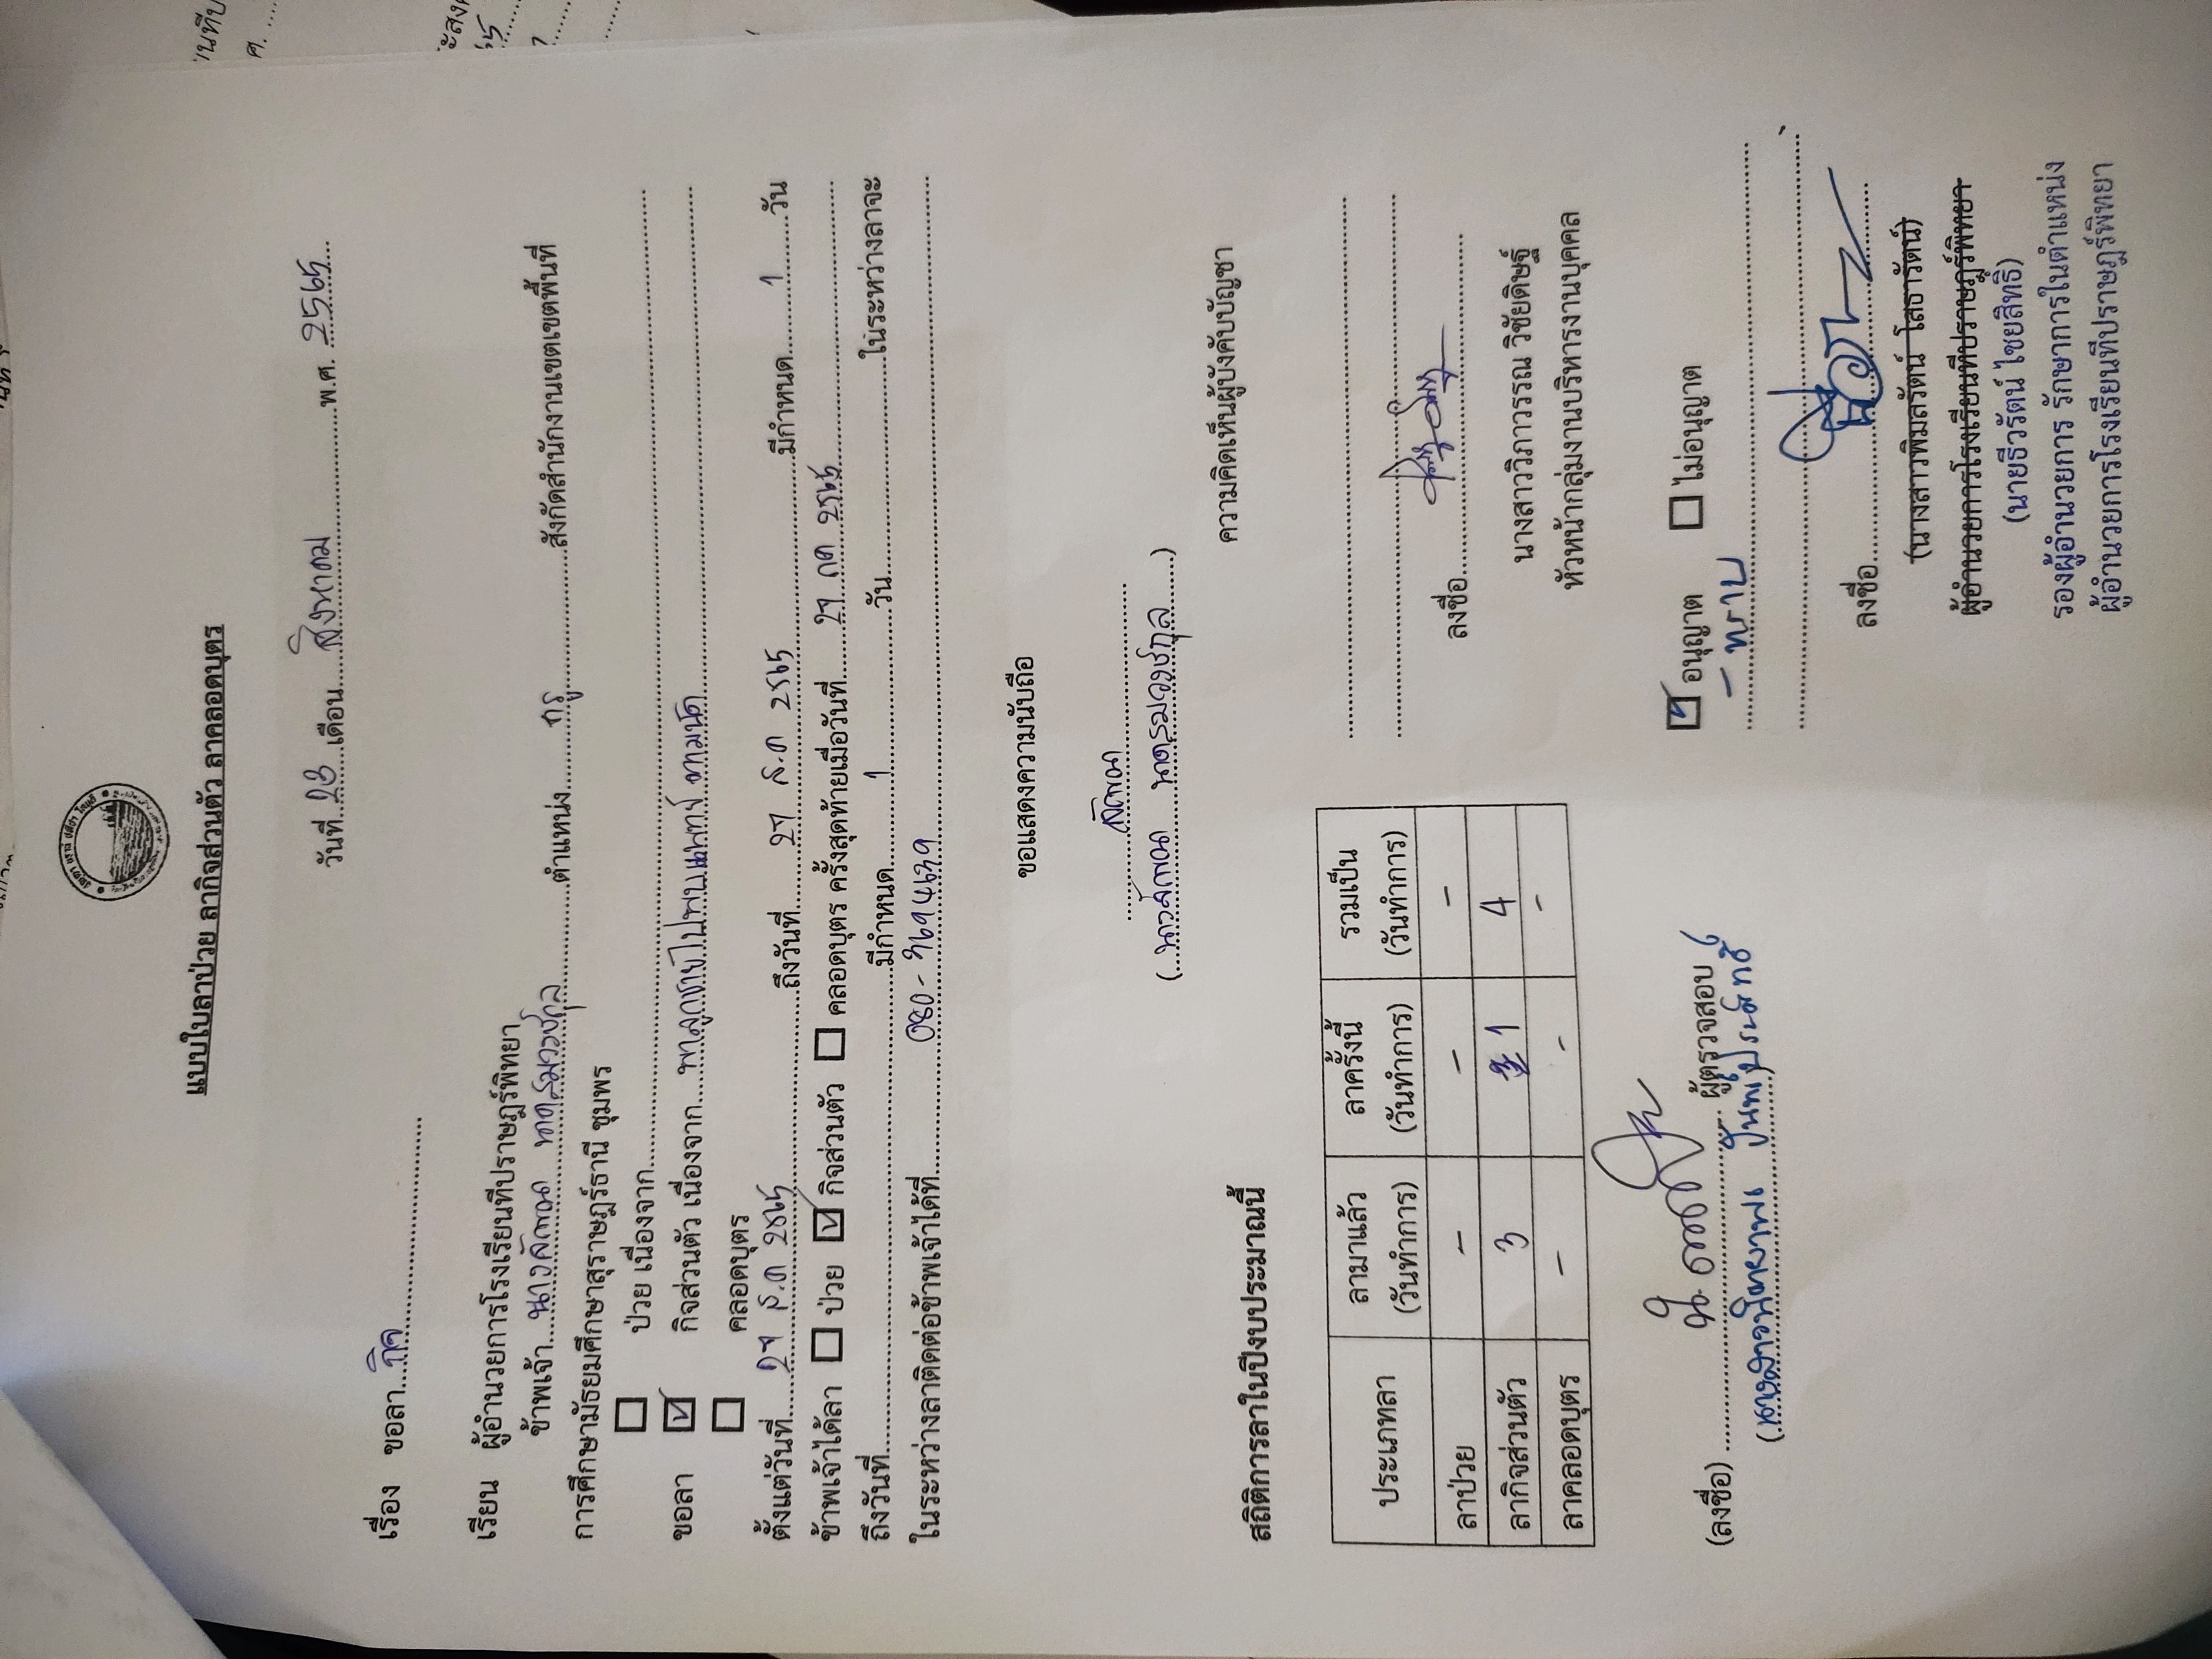 แบบใบลาป่วย ลากิจส่วนตัว ลาคลอดบุตร
วันที่ 23 เดือน สิงหาคม พ.ศ. 2565
เรื่อง ขอลา กิจ
เรียน ผู้อำนวยการโรงเรียนทีปราษฎร์พิทยา
ข้าพเจ้า ตำแหน่ง ครู สังกัดสำนักงานเขตพื้นที่
การศึกษามัธยมศึกษาสุราษฎร์ธานี ชุมพร
☐ ป่วย เนื่องจาก
ขอลา ☑ กิจส่วนตัว เนื่องจาก พาลูกชายไปพบแพทย์ ตามนัด
☐ คลอดบุตร
ตั้งแต่วันที่ 27 ส.ค 2565 ถึงวันที่ 27 ส.ค 2565 มีกำหนด 1 วัน
ข้าพเจ้าได้ลา ☐ ป่วย ☑ กิจส่วนตัว ☐ คลอดบุตร ครั้งสุดท้ายเมื่อวันที่ 27 กค 2565
ถึงวันที่ มีกำหนด 1 วัน ในระหว่างลาจะ
ในระหว่างลาติดต่อข้าพเจ้าได้ที่ 080-7694639
ขอแสดงความนับถือ
ความคิดเห็นผู้บังคับบัญชา
ลงชื่อ
นางสาววิภาวรรณ วิชัยดิษฐ์
หัวหน้ากลุ่มงานบริหารงานบุคคล
สถิติการลาในปีงบประมาณนี้
ประเภทลา ลามาแล้ว (วันทำการ) ลาครั้งนี้ (วันทำการ) รวมเป็น (วันทำการ)
ลาป่วย - - -
ลากิจส่วนตัว 3 1 4
ลาคลอดบุตร - - -
(ลงชื่อ) ผู้ตรวจสอบ
☑ อนุญาต ☐ ไม่อนุญาต
- ทราบ
ลงชื่อ
(นางสาวพิมลรัตน์ โสธารัตน์)
ผู้อำนวยการโรงเรียนทีปราษฎร์พิทยา
(นายธีวรัตน์ ไชยสิทธิ์)
รองผู้อำนวยการ รักษาการในตำแหน่ง
ผู้อำนวยการโรงเรียนทีปราษฎร์พิทยา